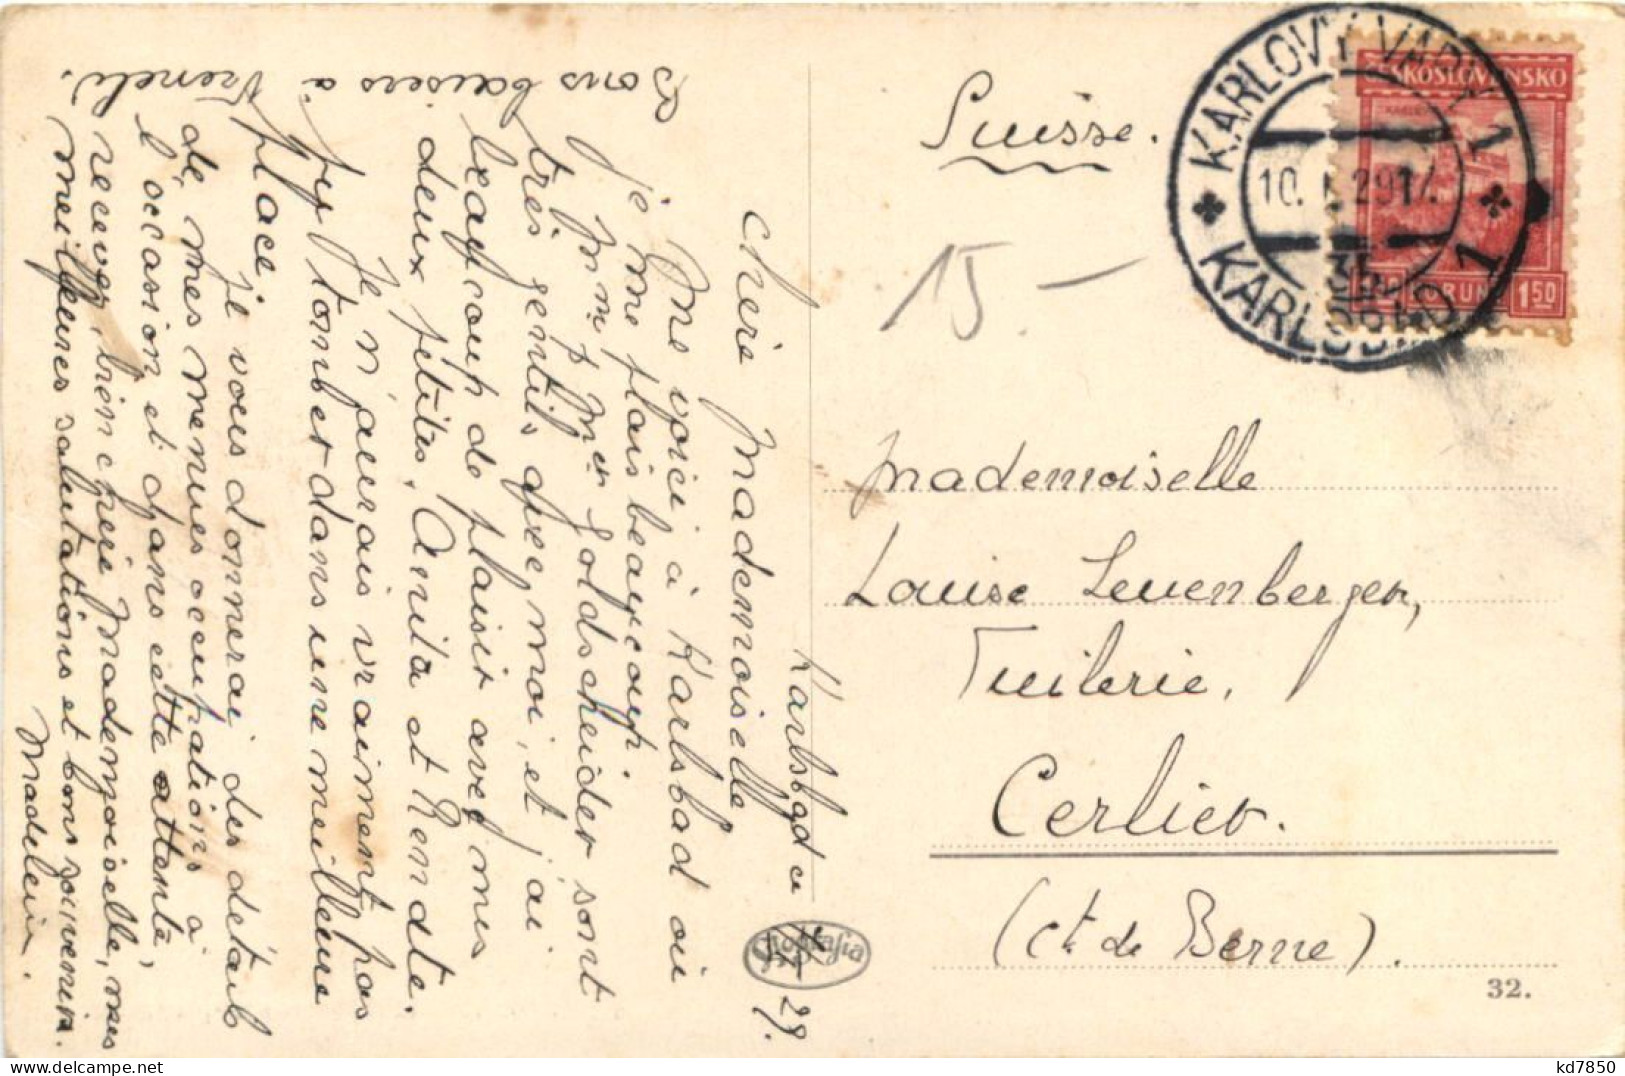 Karlsbad ce
29.
Chère Mademoiselle
Me voici à Karlsbad où
je me plais beaucoup.
Mm. & Mer Goldscheider sont
très gentils avec moi, et j'ai
beaucoup de plaisir avec mes
deux petites, Anita et Renate.
Je n'aurais vraiment pas
pu tomber dans une meilleure
place.
Je vous donnerai des détails
de mes menues occupations à
l'occasion et dans cette attente,
recevez, bien chère Mademoiselle, mes
meilleures salutations et bons souvenirs.
Madeleine.
Bons baisers à
Vreneli.
Suisse.
15.-
Mademoiselle
Louise Leuenberger,
Tuilerie.
Cerlier.
(Ct. de Berne).
32.
KARLOVY VARY 1
10. 29 17
3b
KARLSBAD 1
ČESKOSLOVENSKO
KORUNA 1 50
kd7850